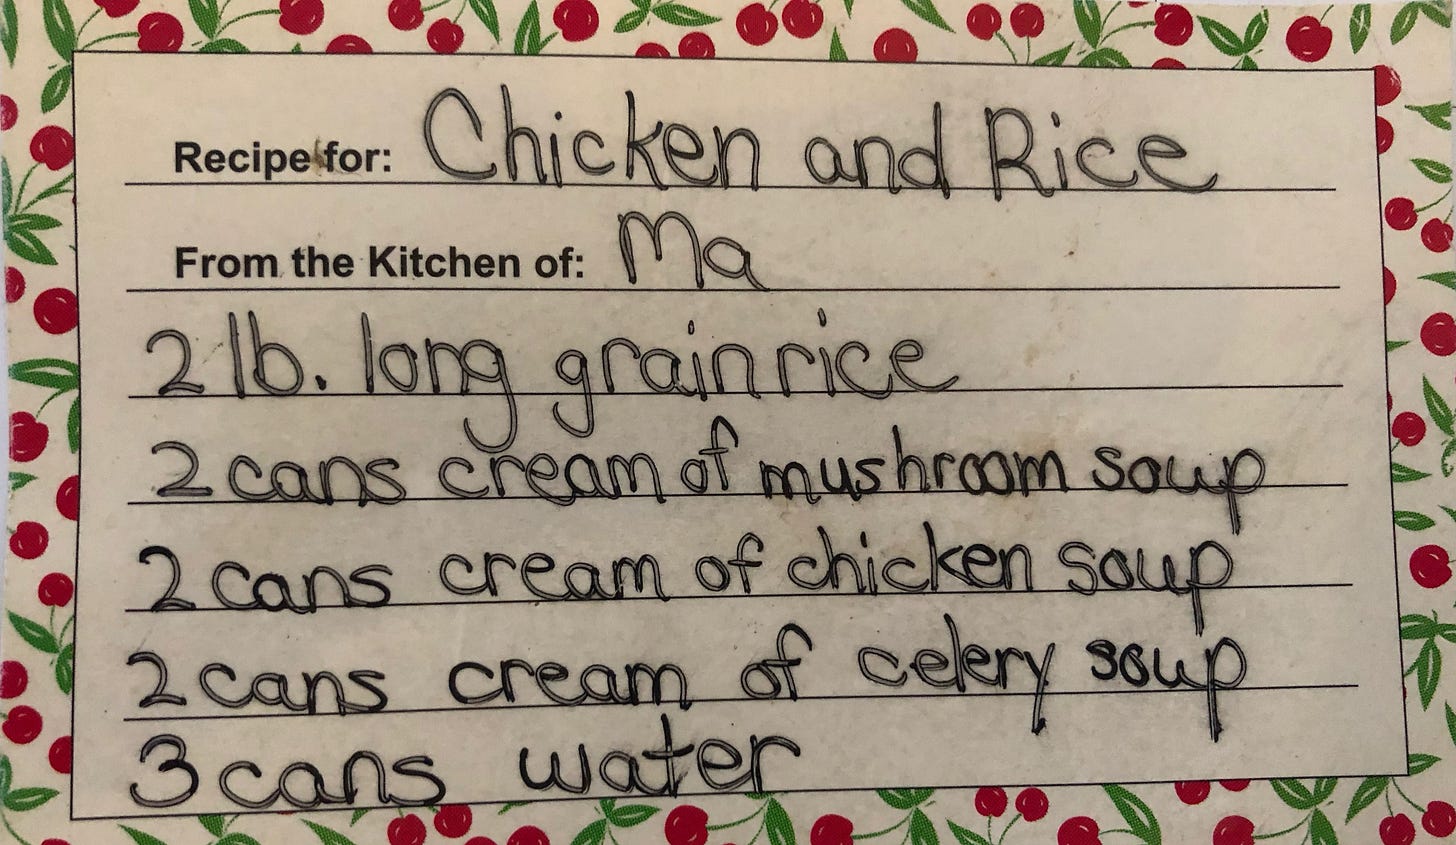 Recipe for: Chicken and Rice
From the Kitchen of: Ma
2 lb. long grain rice
2 cans cream of mushroom soup
2 cans cream of chicken soup
2 cans cream of celery soup
3 cans water